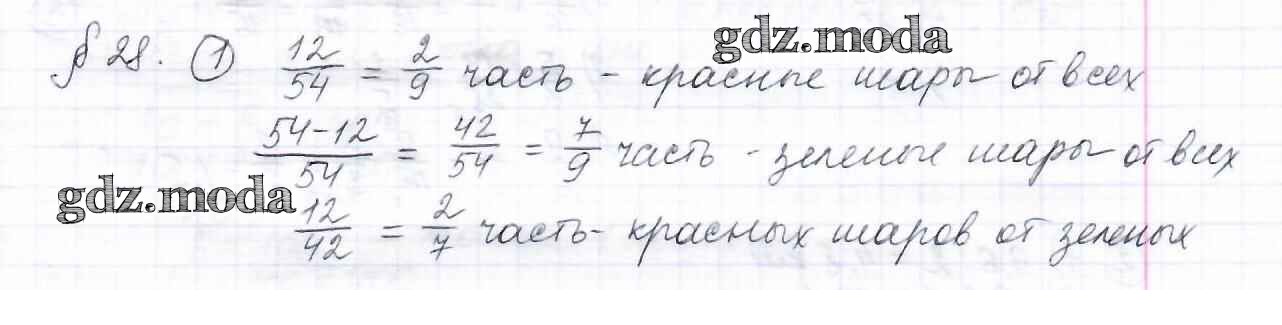 gdz.moda
§ 28. ① 12/54 = 2/9 часть - красные шары от всех
(54-12)/54 = 42/54 = 7/9 часть - зеленые шары от всех
gdz.moda
12/42 = 2/7 часть - красных шаров от зеленых